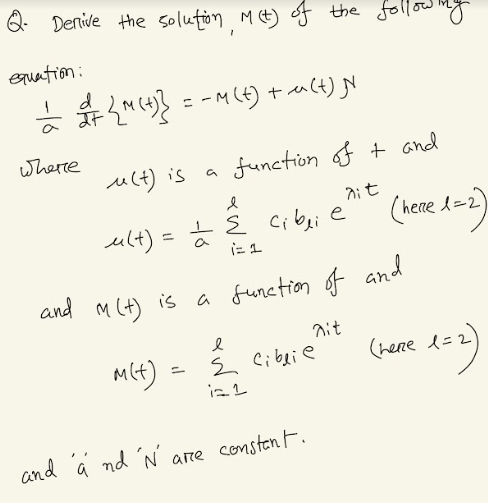 Q. Derive the solution, M(t) of the following
equation:
1/a d/dt {M(t)} = -M(t) + u(t) N
where u(t) is a function of t and
u(t) = 1/a Σ_{i=1}^{l} c_i b_{li} e^{λit} (here l=2)
and M(t) is a function of and
M(t) = Σ_{i=1}^{l} c_i b_{li} e^{λit} (here l=2)
and 'a' nd 'N' are constent.